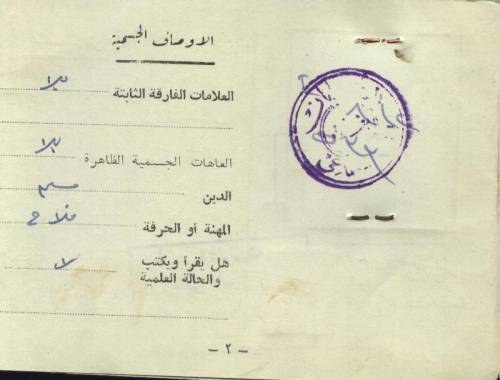 الاوصاف الجسمية
العلامات الفارقة الثابتة بلا
العاهات الجسمية الظاهرة بلا
الدين مسلم
المهنة أو الحرفة فلاح
هل يقرأ ويكتب لا
والحالة العلمية
- ٢ -